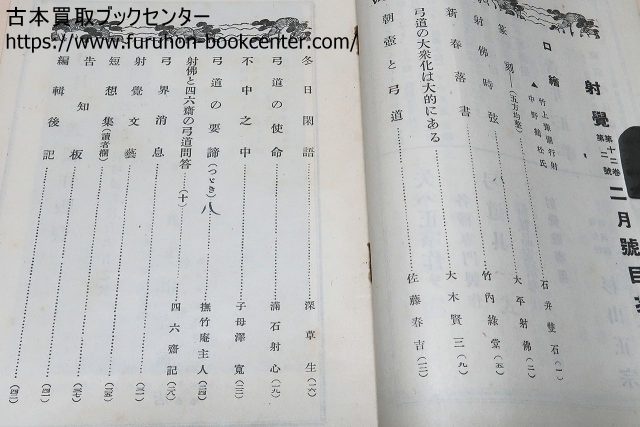 古本買取ブックセンター
https://www.furuhon-bookcenter.com/
射覺 第十二卷 第二號 二月號目
口繪
▲竹上 行射
中野 松氏
篆刻──(五万均卷)…石井雙石(一)
射佛時弦…大平射佛(二)
新春落書…竹內綠堂(五)
弓道の大衆化は大的にある…大木賢三(九)
朝壺と弓道…佐藤春吉(一三)
冬日閑語…深草生(一六)
弓道の使命…滿石射心(一九)
不中之中…子母澤寬(二三)
弓道の要諦(つゞき)八…撫竹庵主人(二四)
射佛と四六齋の弓道問答…(十)…四六齋記(二八)
弓界消息
射覺文藝…(三一)
短想集(讀者欄)…(三五)
告知板…(三七)
編輯後記…(四二)